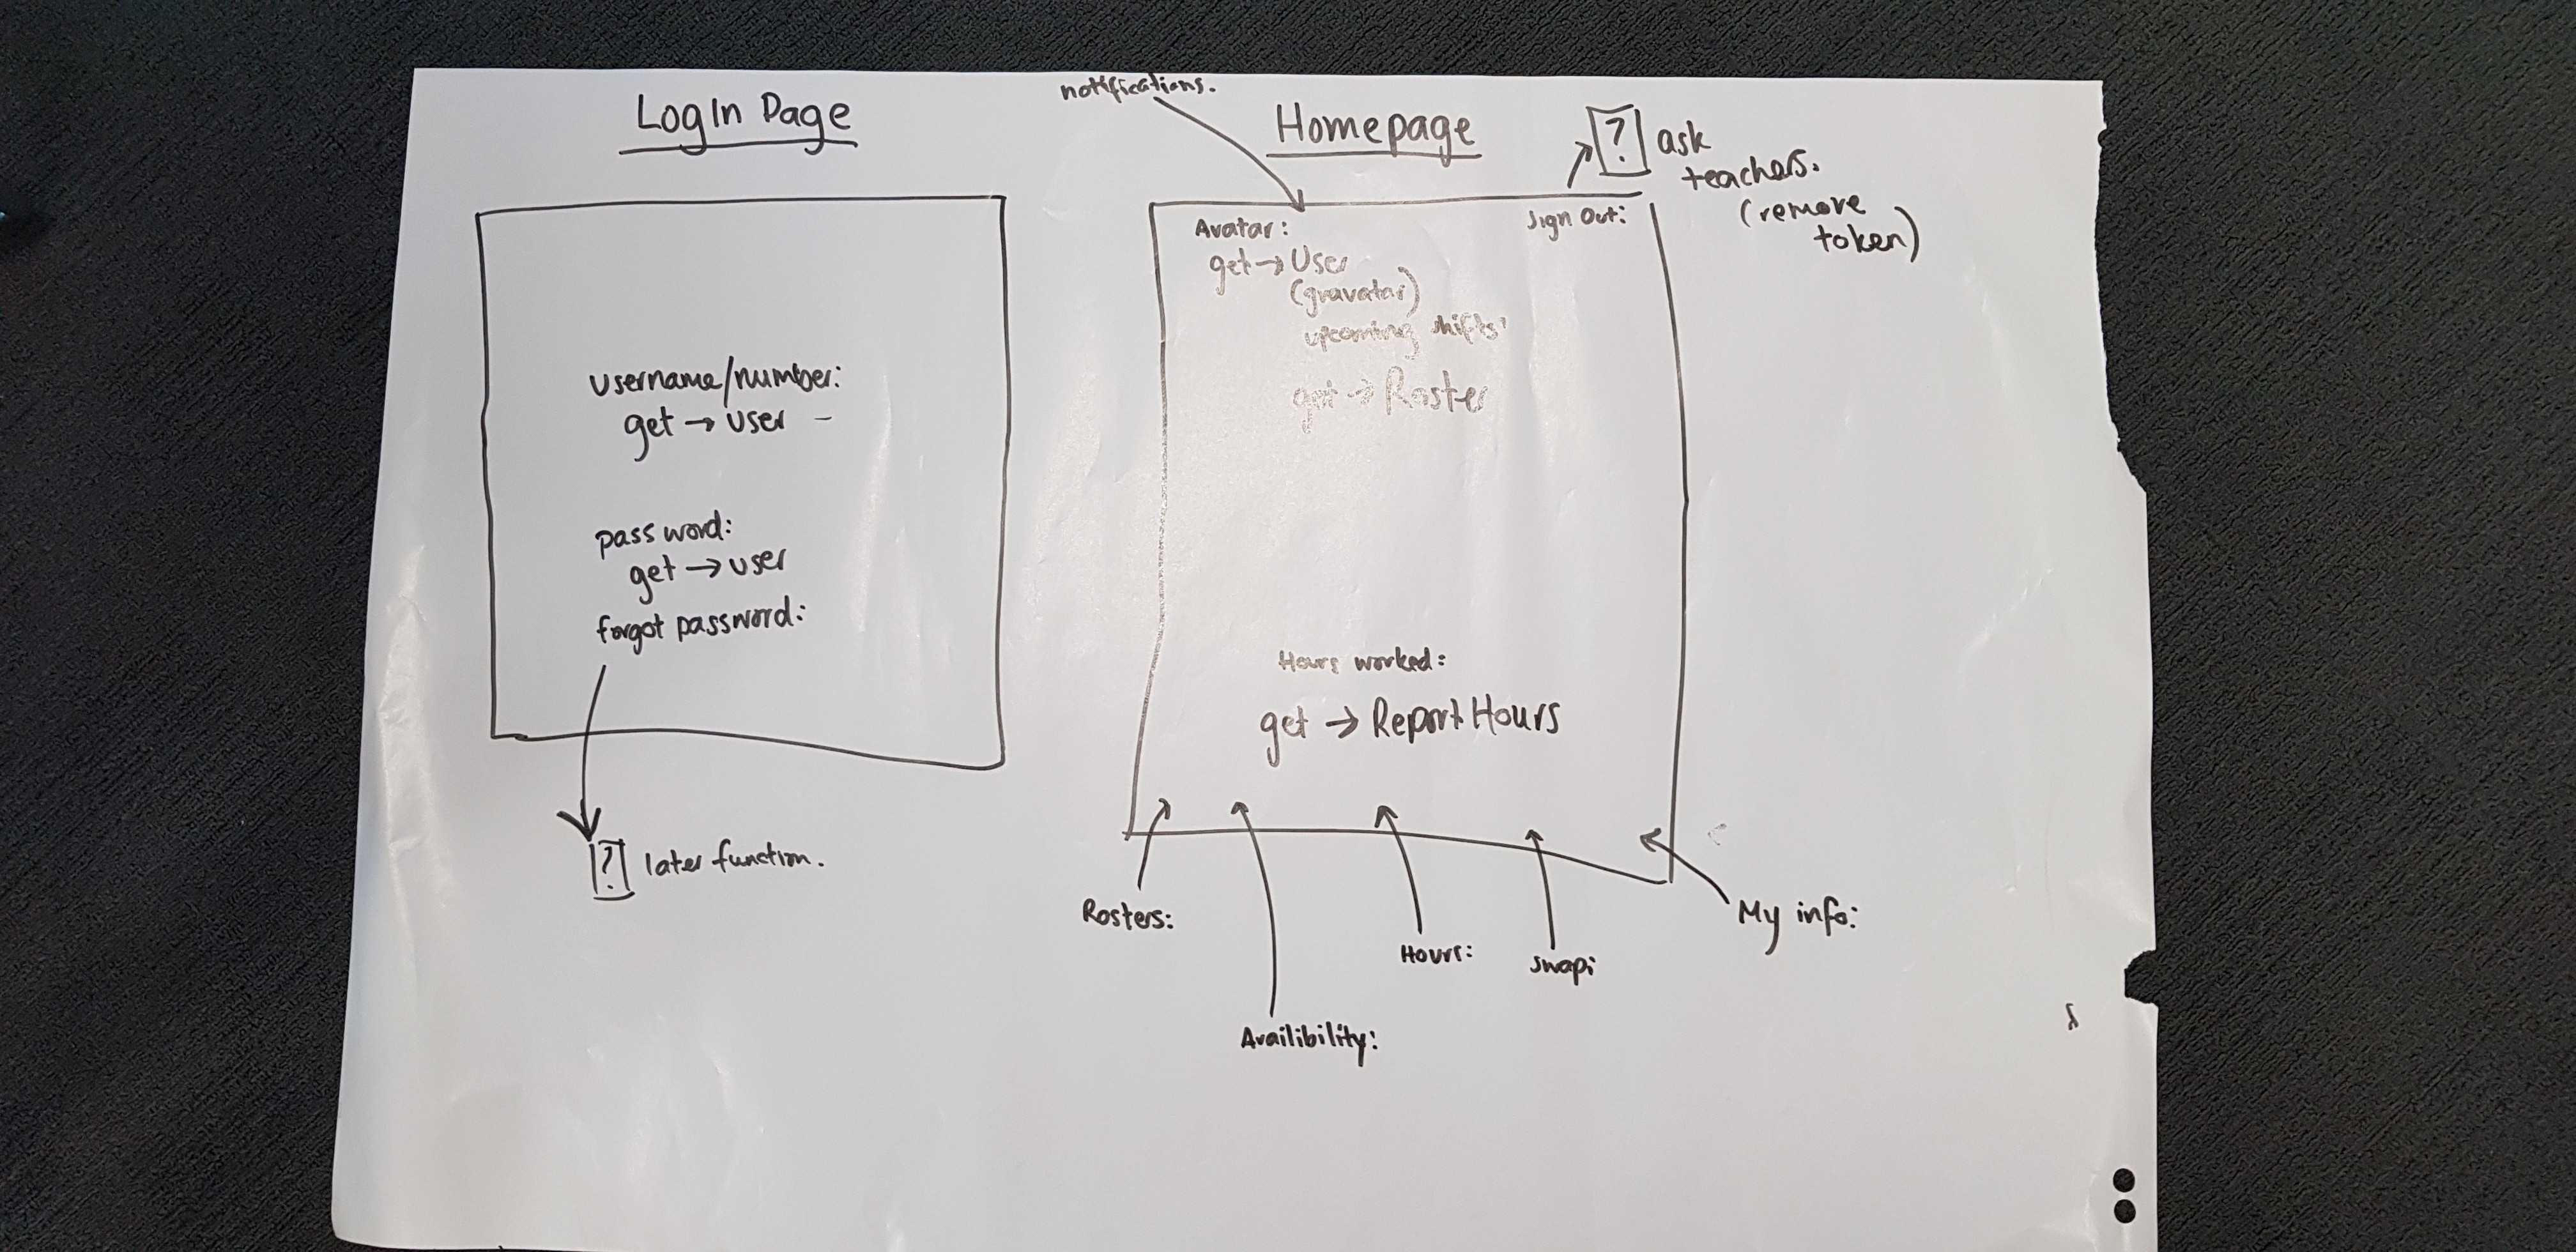 LogIn Page
username/number:
get → user –
password:
get → user
forgot password:
? later function.
notifications.
Homepage
? ask
teachers.
(remove
token)
Avatar:
get → User
(gravatar)
Sign Out:
upcoming shifts
get → Roster
Hours worked:
get → ReportHours
Rosters:
Availibility:
Hours:
Swap:
My info: